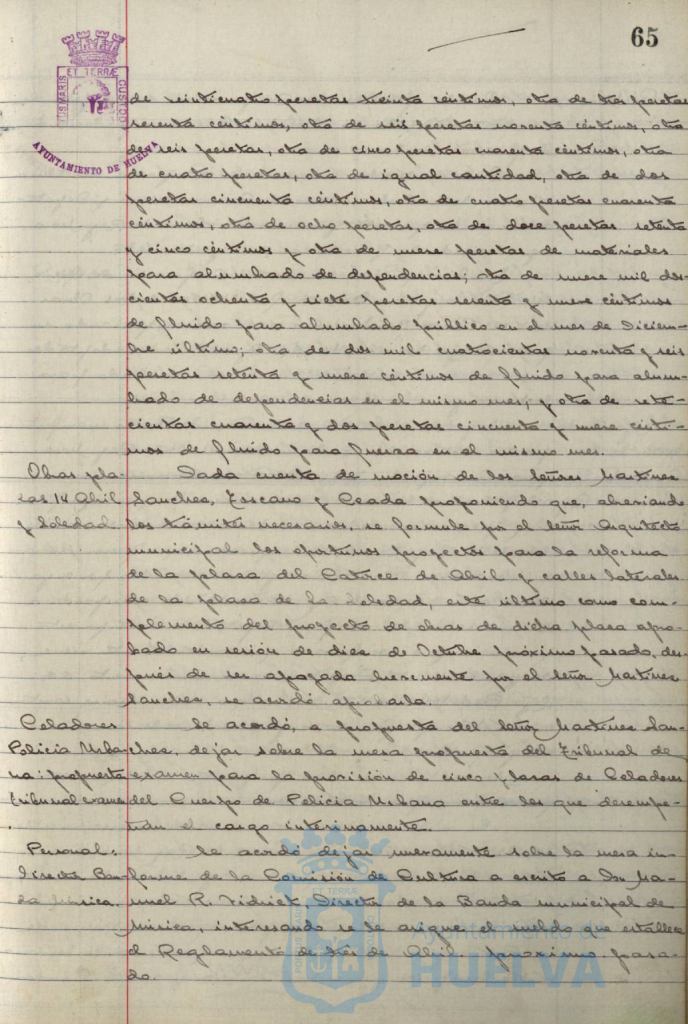 65
ET TERRÆ
CUSTODIA
AYUNTAMIENTO DE HUELVA
de veinticuatro pesetas treinta céntimos, otra de tres pesetas
sesenta céntimos, otra de seis pesetas noventa céntimos, otra
de seis pesetas, otra de cinco pesetas cuarenta céntimos, otra
de cuatro pesetas, otra de igual cantidad, otra de dos
pesetas cincuenta céntimos, otra de cuatro pesetas cuarenta
céntimos, otra de ocho pesetas, otra de doce pesetas setenta
y cinco céntimos y otra de nueve pesetas de materiales
para alumbrado de dependencias; otra de nueve mil dos-
cientas ochenta y siete pesetas sesenta y nueve céntimos
de fluido para alumbrado público en el mes de Diciem-
bre último; otra de dos mil cuatrocientas noventa y seis
pesetas setenta y nueve céntimos de fluido para alum-
brado de dependencias en el mismo mes; y otra de sete-
cientas cuarenta y dos pesetas cincuenta y nueve cénti-
mos de fluido para fuerza en el mismo mes.
Obras pla-
zas 14 Abril
y Soledad.
Dada cuenta de moción de los Señores Martínez
Sánchez, Toscano y Ceada proponiendo que, abreviando
los trámites necesarios, se formule por el Señor Arquitecto
municipal los oportunos proyectos para la reforma
de la plaza del Catorce de Abril y calles laterales
de la plaza de la Soledad, este último como com-
plemento del proyecto de obras de dicha plaza apro-
bado en sesión de diez de Octubre próximo pasado, des-
pués de ser apoyada brevemente por el Señor Martínez
Sánchez, se acordó aprobarla.
Celadores
Policía Urba-
na: propuesta
tribunal examen
Se acordó, a propuesta del Señor Martínez Sán-
chez, dejar sobre la mesa propuesta del Tribunal de
examen para la provisión de cinco plazas de Celadores
del Cuerpo de Policía Urbana entre los que desempe-
ñan el cargo interinamente.
Personal:
Director Ban-
da Música.
Se acordó dejar nuevamente sobre la mesa in-
forme de la Comisión de Cultura a escrito a Don Ma-
nuel R. Vidriet, Director de la Banda municipal de
Música, interesando se le asigne el sueldo que establece
el Reglamento de tres de Abril próximo pasa-
do.
Ayuntamiento de
HUELVA